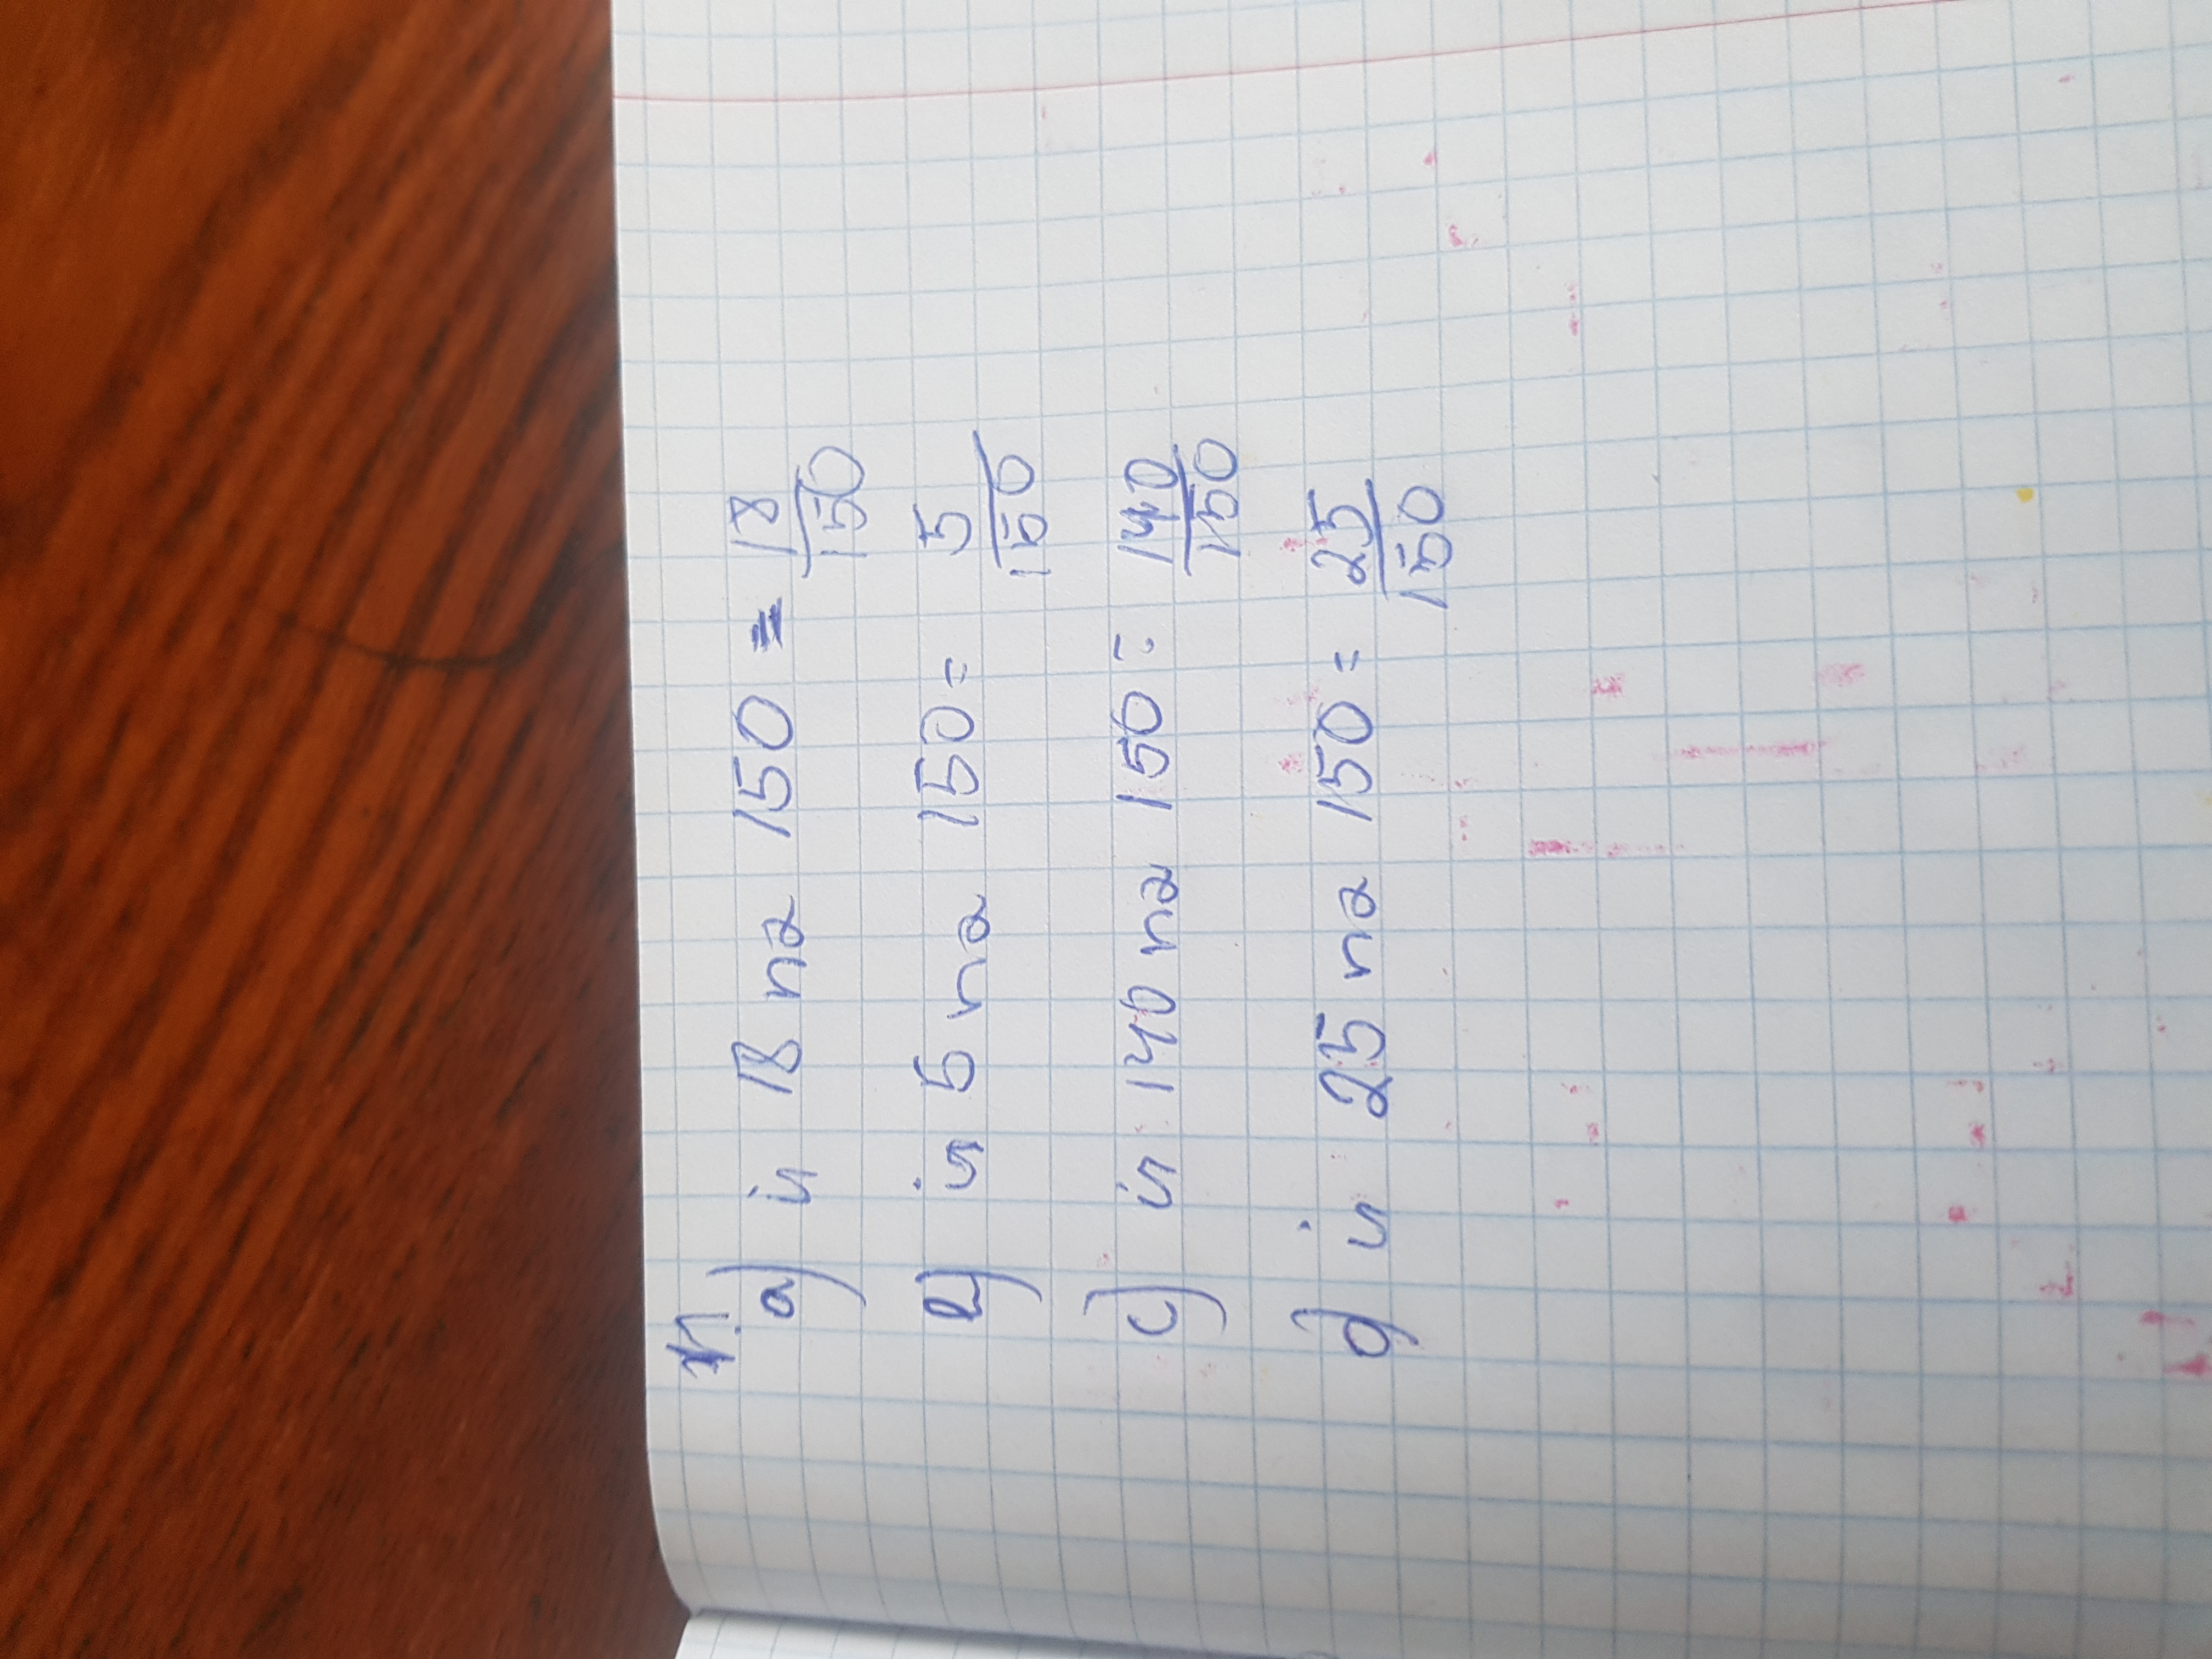 a) 18 na 150 = 18/150
b) 5 na 150 = 5/150
c) 140 na 150 = 140/150
d) 25 na 150 = 25/150